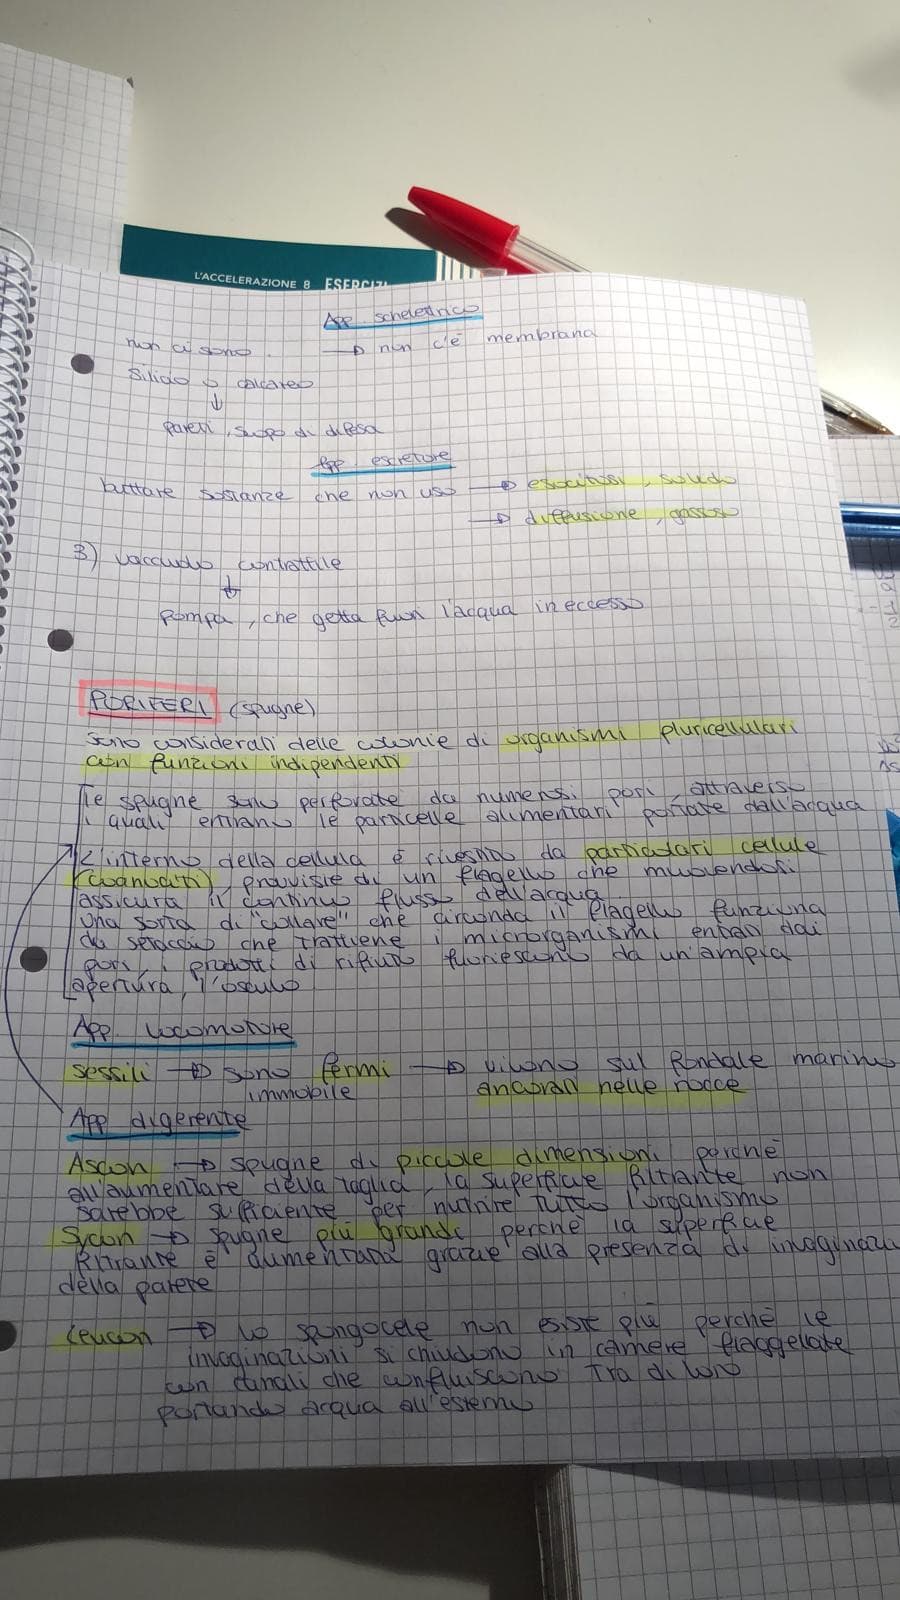 L'ACCELERAZIONE 8 ESERCIZI
App. scheletrico
non ci sono → non c'è membrana
Siliceo o calcareo
↓
pareti, scopo di difesa
App. escretore
buttare sostanze che non uso → esocitosi, solido
→ diffusione, gassoso
3) vacuolo contrattile
↓
pompa, che getta fuori l'acqua in eccesso
PORIFERI (spugne)
sono considerati delle colonie di organismi pluricellulari
con funzioni indipendenti
Le spugne sono perforate da numerosi pori, attraverso
i quali entrano le particelle alimentari portate dall'acqua
L'interno della cellula è rivestito da particolari cellule
(coanociti), provviste di un flagello che muovendosi
assicura il continuo flusso dell'acqua
Una sorta di "collare" che circonda il flagello funziona
da setaccio che trattiene i microrganismi entrati dai
pori, i prodotti di rifiuto fuoriescono da un'ampia
apertura, l'osculo
App. locomotore
sessili → sono fermi → vivono sul fondale marino
immobile ancorati nelle rocce
App digerente
Ascon → spugne di piccole dimensioni perchè
all'aumentare della taglia, la superficie filtrante non
sarebbe sufficiente per nutrire tutto l'organismo
Sycon → spugne più grandi perchè la superficie
filtrante è aumentata grazie alla presenza di invaginazi
della parete
Leucon → lo spongocele non esiste più perchè le
invaginazioni si chiudono in camere flaggellate
con canali che confluiscono tra di loro
portando acqua all'esterno